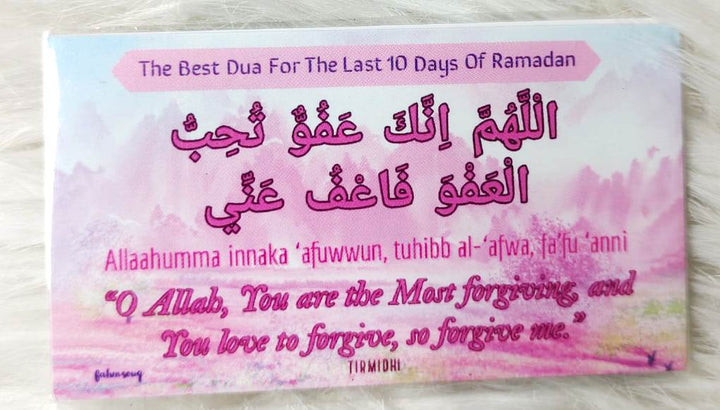 The Best Dua For The Last 10 Days Of Ramadan
اللَّهُمَّ اِنَّكَ عَفُوٌّ تُحِبُّ
الْعَفْوَ فَاعْفُ عَنِّي
Allaahumma innaka ‘afuwwun, tuhibb al-‘afwa, fa‘fu ‘anni
“O Allah, You are the Most forgiving, and
You love to forgive, so forgive me.”
TIRMIDHI